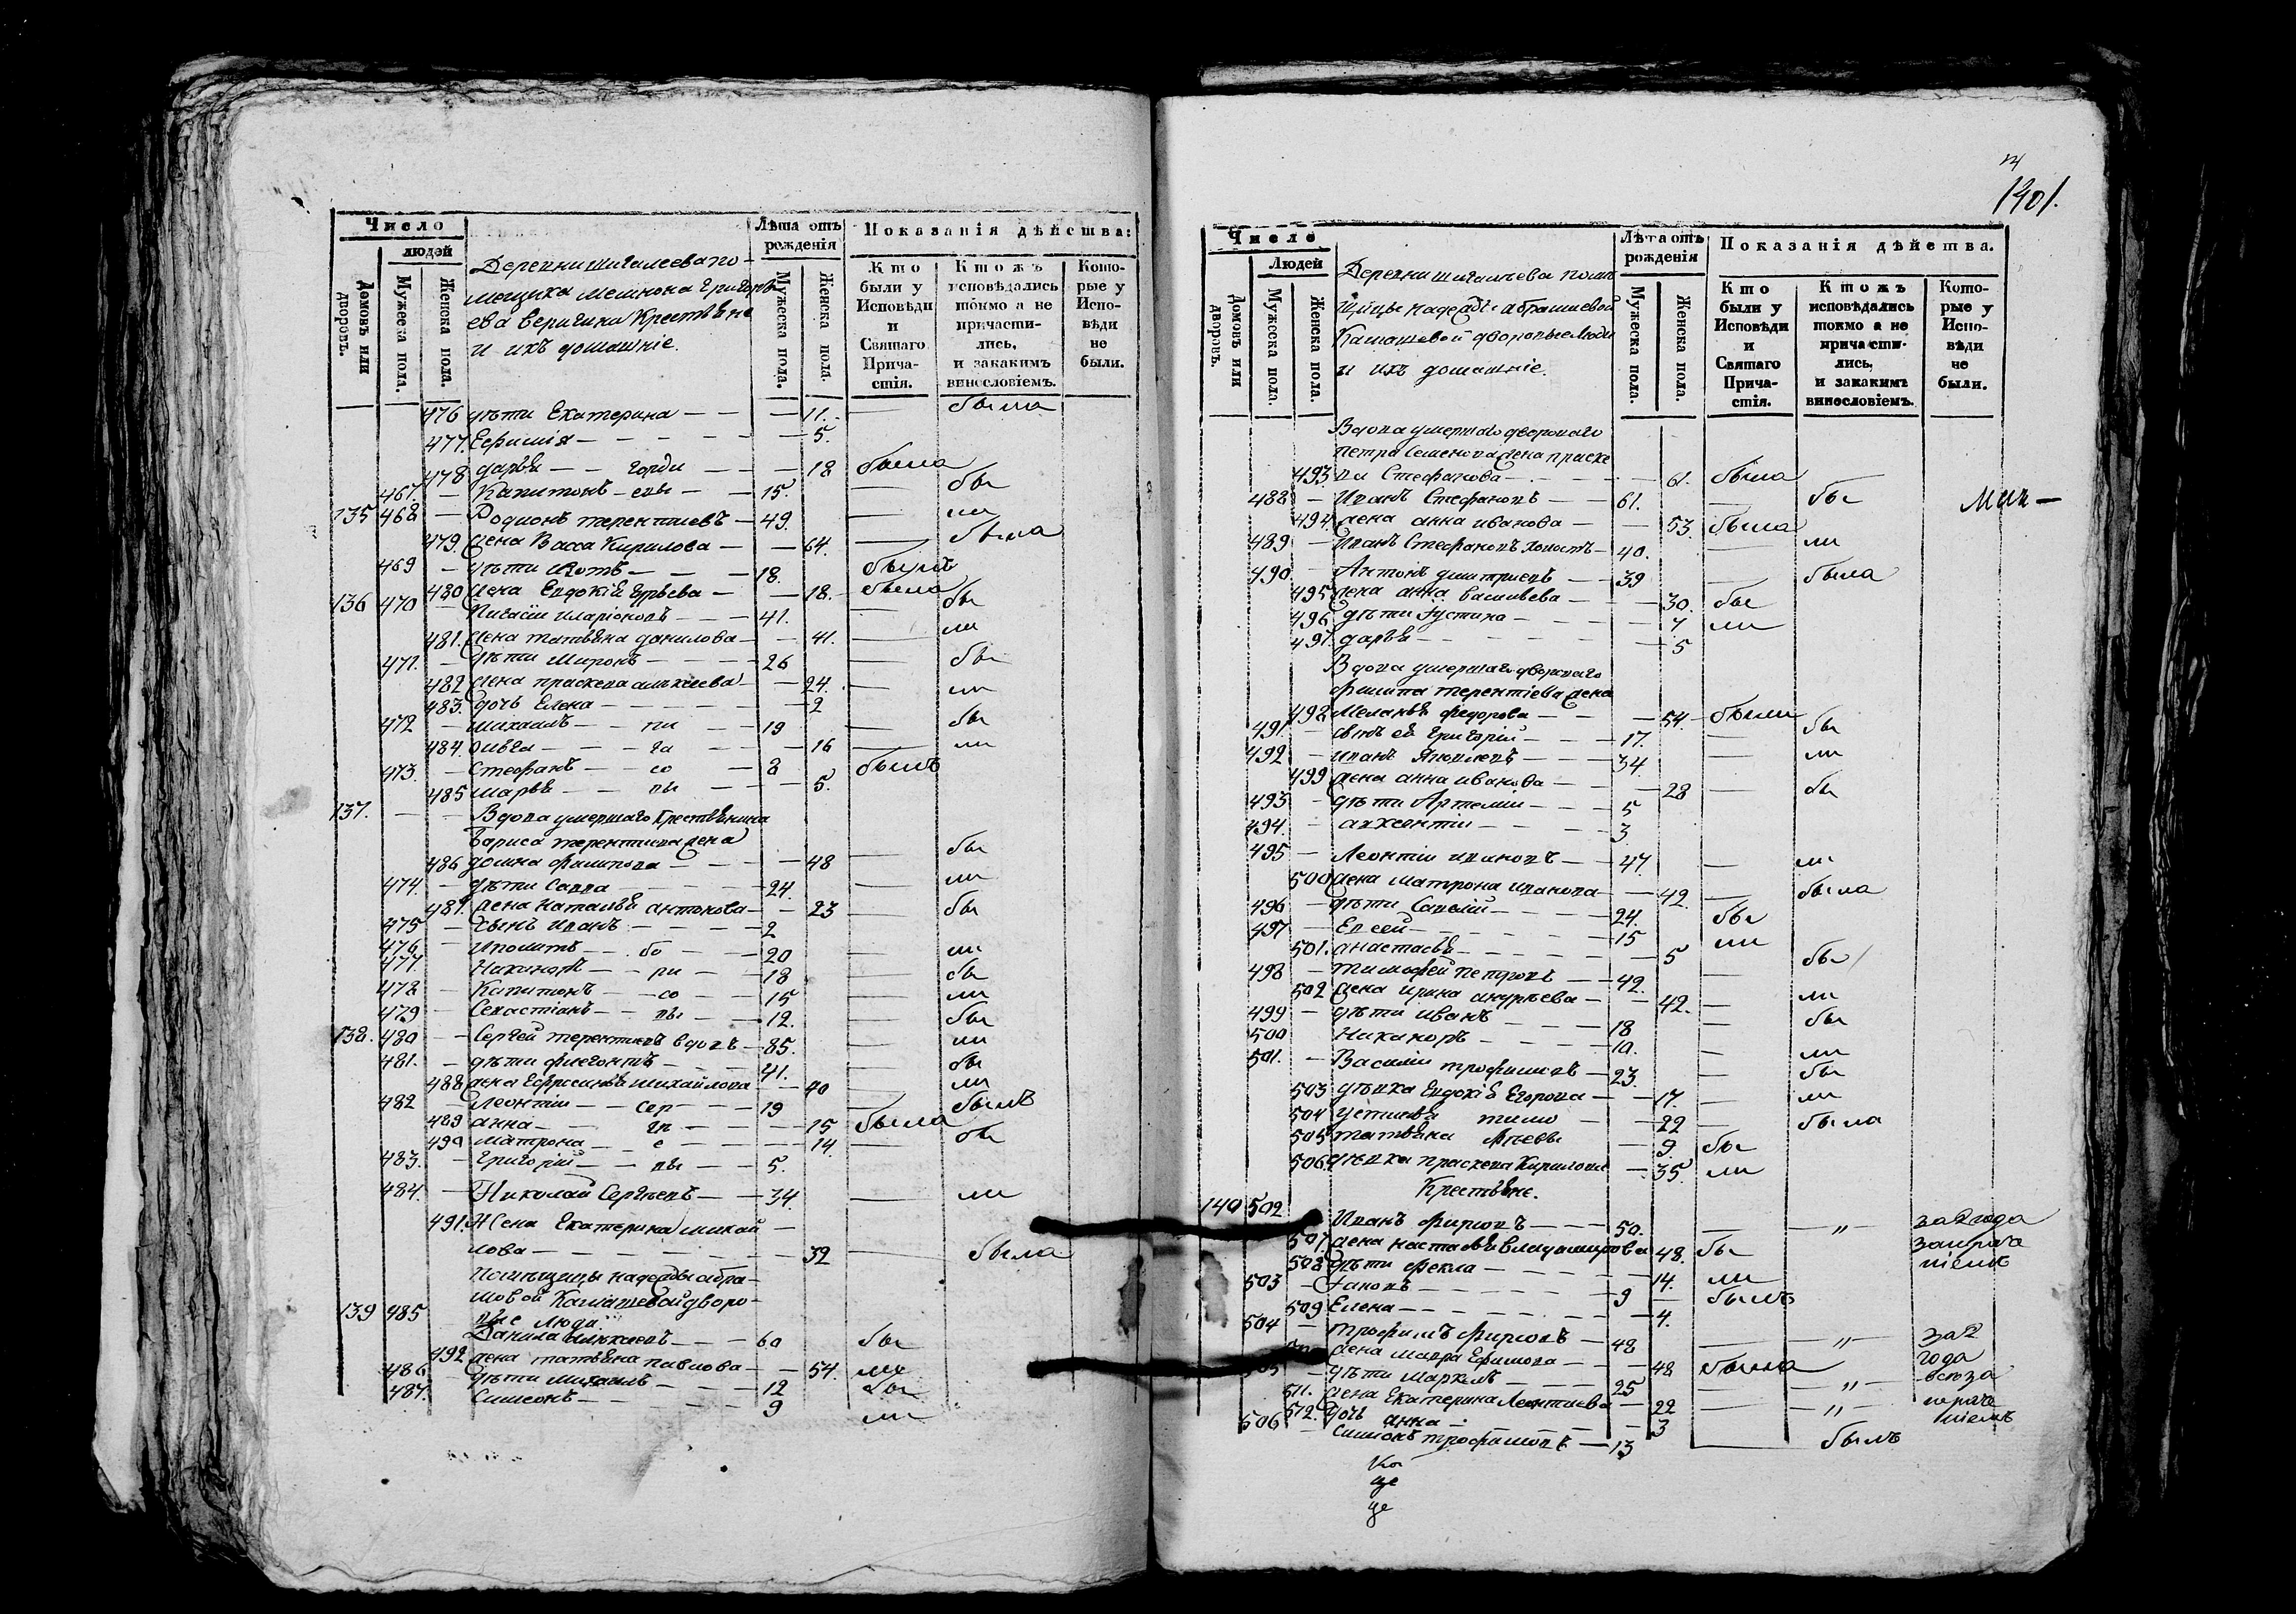 Число
людей
Домовъ или дворовъ.
Мужеска пола.
Женска пола.
Деревни Шигалеева по-
мещика Григорь-
ева Веригина Крестьяне
и ихъ домашніе.
Лѣта отъ рожденія
Мужеска пола.
Женска пола.
Показанія дѣйства:
Кто были у Исповѣди и Святаго Прича-стія.
Ктожъ исповѣдались токмо а не причасти-лись, и закакимъ винословіемъ.
Кото-рые у Испо-вѣди не были.
476 дѣти Екатерина — — — 11. была
477. Ефимія — — — 5.
478 дарья — — горди — — 18 была
467. — Капитонъ — евы — 15. — бы
135 468 — Родионъ терентиевъ — 49. — ли
479. жена Васса Кирилова — — 64. — была
469 — дѣти Изотъ — — 18. былъ
480 жена Евдокія Юрьева — — 18. была
136 470 — иларіоновъ — — 41. — бы
481. жена татьяна данилова — — 41. — ли
471. — дѣти Миронъ — — 26 — бы
482 жена праскева — — 24. — ли
483. дочь Елена — — — 2
472 михаилъ — — пи — 19 — бы
484. олга — — га — — 16 — ли
473. — Стефанъ — со — 8 былъ
485 марья — — вы — — 5.
137. — — Вдова умершаго крестьянина
Бориса терентиева жена
486 домна филипова — — 48 — бы
474. — дѣти Савва — — 24. — ли
487. жена наталья антонова — — 23 — бы
475 — сынъ Иванъ — — 2
476 — Иполитъ — бо — 20 — ли
477. Никаноръ — ри — 18 — бы
478 — Капитонъ — со — 15 — ли
479 — Севастіанъ — вы — 12. — бы
138. 480 — Сергей терентиевъ вдовъ — 85. — ли
481. — дѣти флегонтъ — 41. — бы
488 жена Ефросинья михайлова — — 40 — ли
482 — Леонтіи — сер — 19 — былъ
489 анна — ги — — 15 была
490 матрона — е — — 14. — бы
483. — Григорій — вы — 5.
484. — Николай Сергѣевъ — 34. — ли
491. Жена Екатерина михай —
лова — — — 32 — была
Помѣщицы надежды абра-
мовой Каташевой дворо-
вые люди:
139 485 Данила — 60 бы
492 жена татьяна павлова — — 54. ли
486 — дѣти михаилъ — — 12 бы
487. Симеонъ — — 9 ли
1401.
Число
Людей
Домовъ или дворовъ.
Мужеска пола.
Женска пола.
Деревни Шигалеева помѣ
щицы надежды абрамовой
Каташевой дворовые люди
и ихъ домашніе.
Лѣта отъ рожденія
Мужеска пола.
Женска пола.
Показанія дѣйства.
Кто были у Исповѣди и Святаго Прича-стія.
Ктожъ исповѣдались токмо а не причасти-лись, и закакимъ винословіемъ.
Кото-рые у Испо-вѣди не были.
Вдова умершаго двороваго
петра Семенова жена праске
493 ва Стефанова — — — 61. была —
488 — Иванъ Стефановъ — — 61. — бы
494. жена анна иванова — — 53. была
489 — Иванъ Стефановъ холостъ — 40. — ли
490 — Антонъ дмитриевъ — — 39 — была
495 жена анна васильева — — 30. бы
496 дѣти Іустина — — — 7 ли
497. дарья — — — 5
Вдова умершаго двороваго
филипа терентіева жена
498 Меланья федорова — — 54. — были
491 — сынъ ея Григорій — — 17. — бы
492 — иванъ Яковлевъ — — 34. — ли
499 жена анна иванова — — 28 — бы
493 — дѣти Артемій — — 5
494. — авксентіи — — 3
495 — Леонтіи ивановъ — — 47. — ли
500 жена матрона иванова — — 42. — была
496 — дѣти Савелій — — 24. бы
497 — Евсей — — — 15 ли
501. анастасья — — — 5
498 — тимофей петровъ — — 42. — бы
502 жена ирина — — 42. — ли
499 — дѣти иванъ — — 18 — бы
500 Никаноръ — — 10. — ли
501. — Василіи трофимовъ — 23. — бы
503 дѣвка Евдокія Егорова — — 17. — ли
504 устинья тимо — 22 — была
505 татьяна фѣевы — 9 бы
506. дѣвка праскева Кирилова — 35. ли
Крестьяне.
140 502 Иванъ фирсовъ — — 50. — — „ — за 2 года
507. жена настасья владимирова 48. бы
508 дѣти фекла — — — 14. ли
503 — — — 9 — былъ
509 Елена — — — 4.
504 — трофимъ фирсовъ — 48 — — „ — за 2
года
жена мавра Ефимова — — 48 была
505 — дѣти маркелъ — — 25 — — „ —
511. жена Екатерина Леонтиева — 22 — — „ —
512. дочь анна — — 3
506 — Симионъ трофимовъ — 13 — былъ